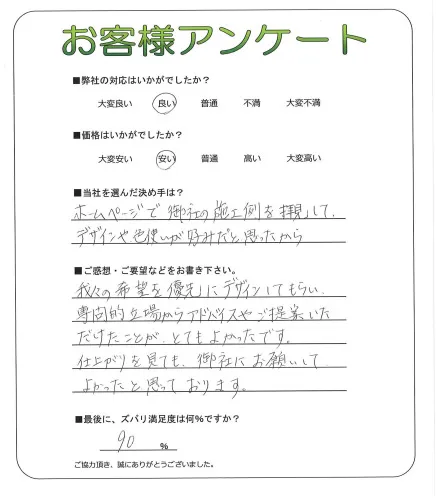 お客様アンケート
■弊社の対応はいかがでしたか？
大変良い 良い 普通 不満 大変不満
■価格はいかがでしたか？
大変安い 安い 普通 高い 大変高い
■当社を選んだ決め手は？
ホームページで御社の施工例を拝見して、
デザインや色使いが好みだと思ったから
■ご感想・ご要望などをお書き下さい。
我々の希望を優先にデザインしてもらい、
専門的立場からアドバイスやご提案いた
だけたことが、とてもよかったです。
仕上がりを見ても、御社にお願いして
よかったと思っております。
■最後に、ズバリ満足度は何%ですか？
90 %
ご協力頂き、誠にありがとうございました。